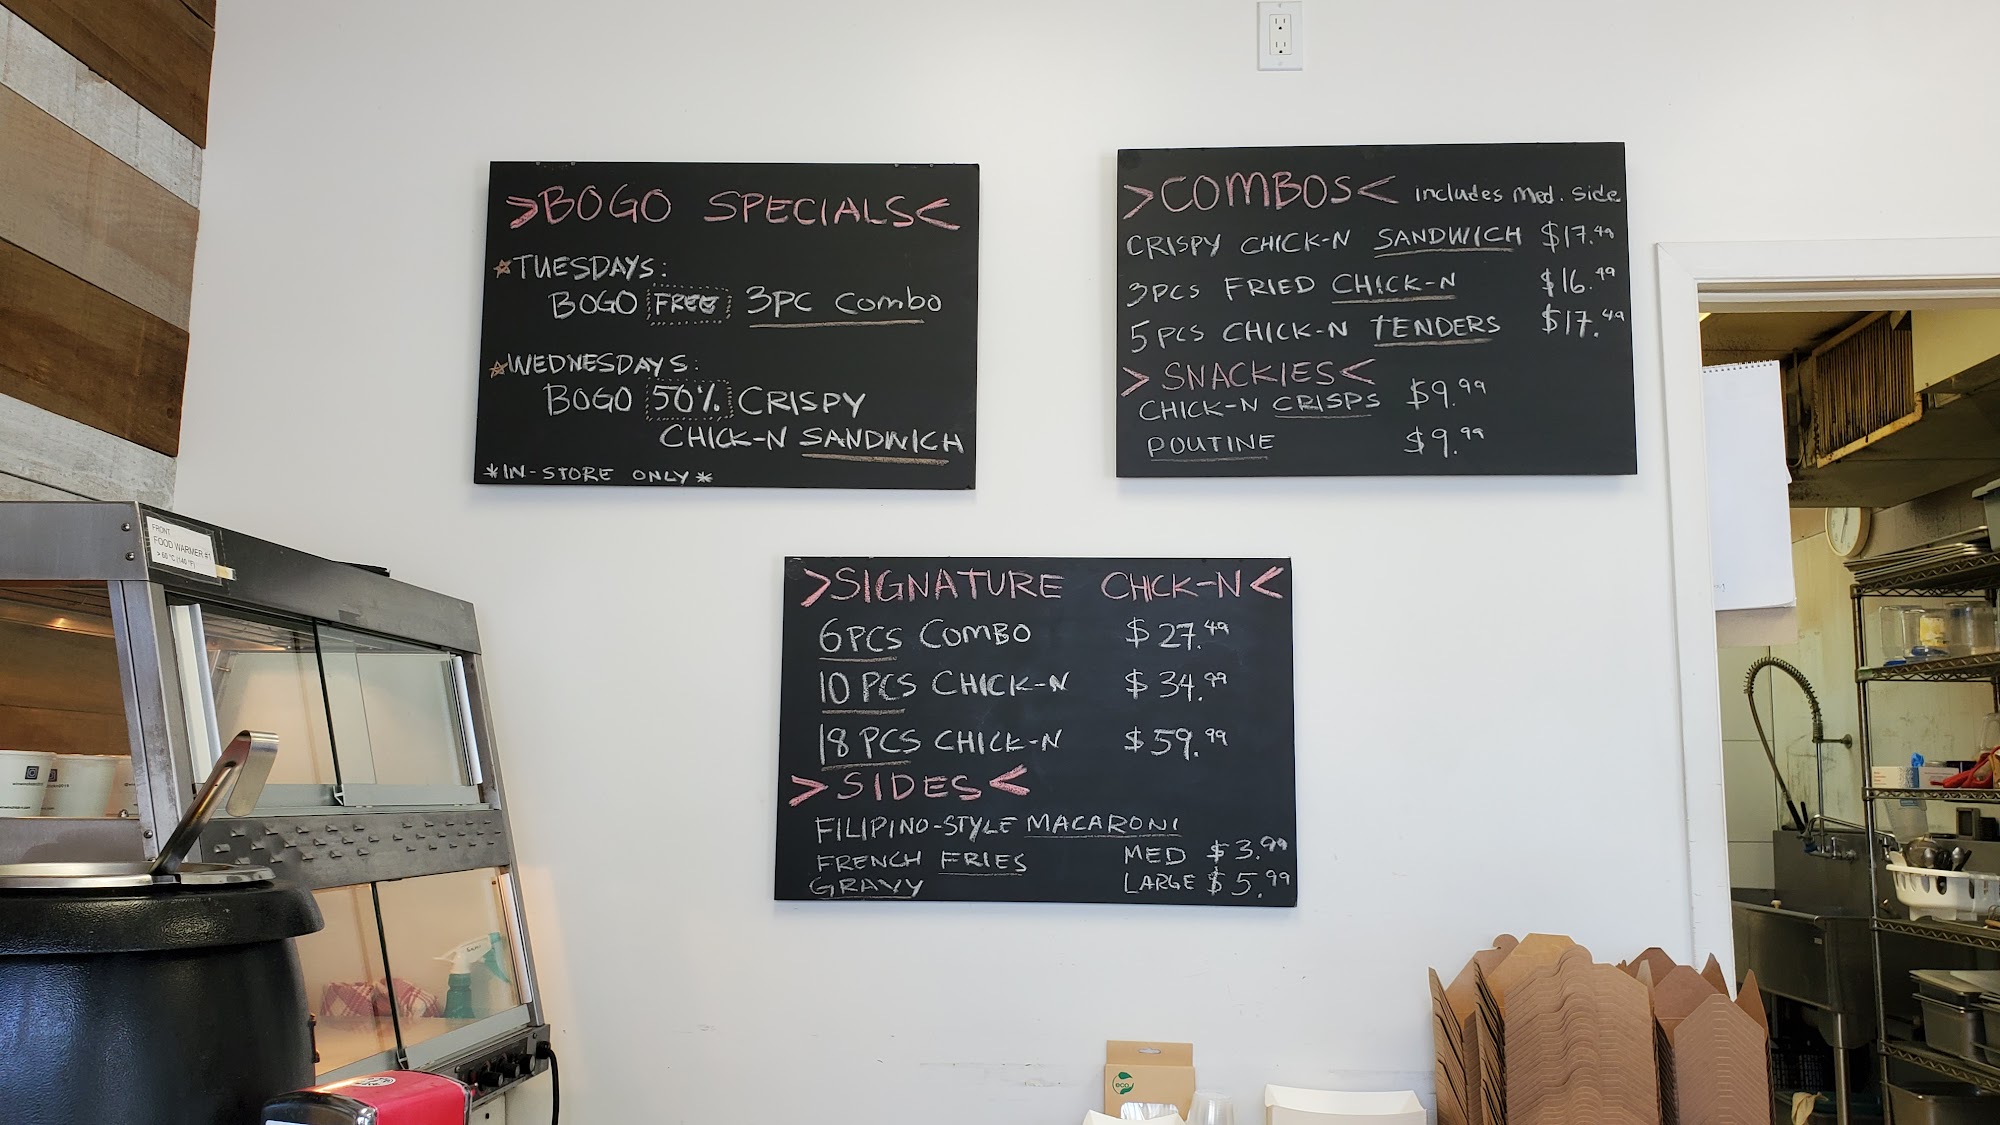 >BOGO SPECIALS<
☆TUESDAYS:
BOGO FREE 3PC COMBO
☆WEDNESDAYS:
BOGO 50% CRISPY
CHICK-N SANDWICH
*IN-STORE ONLY*
>COMBOS< includes med. side
CRISPY CHICK-N SANDWICH $17.49
3PCS FRIED CHICK-N $16.49
5PCS CHICK-N TENDERS $17.49
>SNACKIES<
CHICK-N CRISPS $9.99
POUTINE $9.99
>SIGNATURE CHICK-N<
6PCS COMBO $27.49
10 PCS CHICK-N $34.99
18 PCS CHICK-N $59.99
>SIDES<
FILIPINO-STYLE MACARONI
FRENCH FRIES MED $3.99
GRAVY LARGE $5.99
FRONT
FOOD WARMER #1
> 60 °C (140 °F)
eco